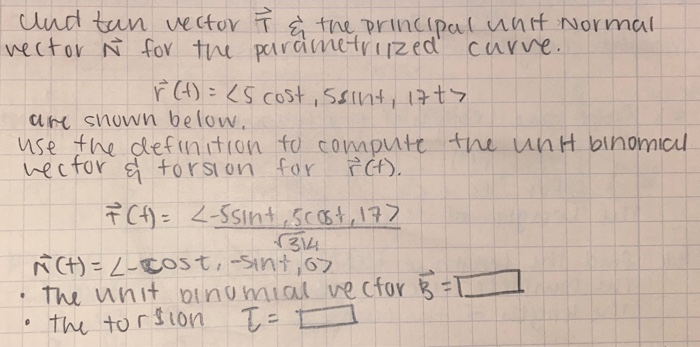 Und tan vector T⃗ & the principal unit Normal
vector N⃗ for the parametriized curve.
r⃗(t) = <5 cost, 5sint, 17t>
are shown below.
use the definition to compute the unit binomial
vector & torsion for r⃗(t).
T⃗(t) = <-5sint, 5cost, 17>
√314
N⃗(t) = <-cost, -sint, 0>
• The unit binomial vector B⃗ =
• the torsion τ =